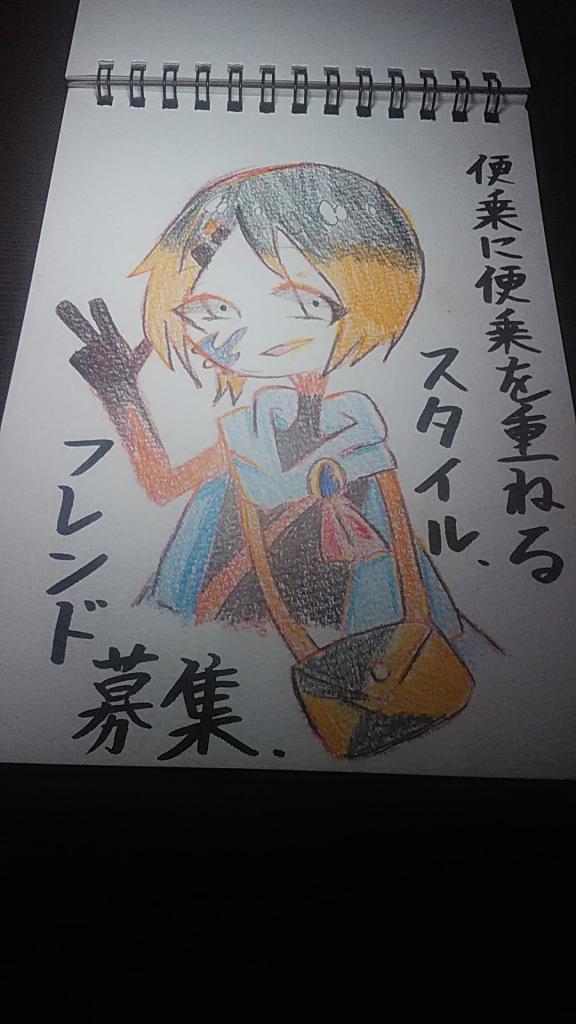 便乗に便乗を重ねる
スタイル、
フレンド
募集.